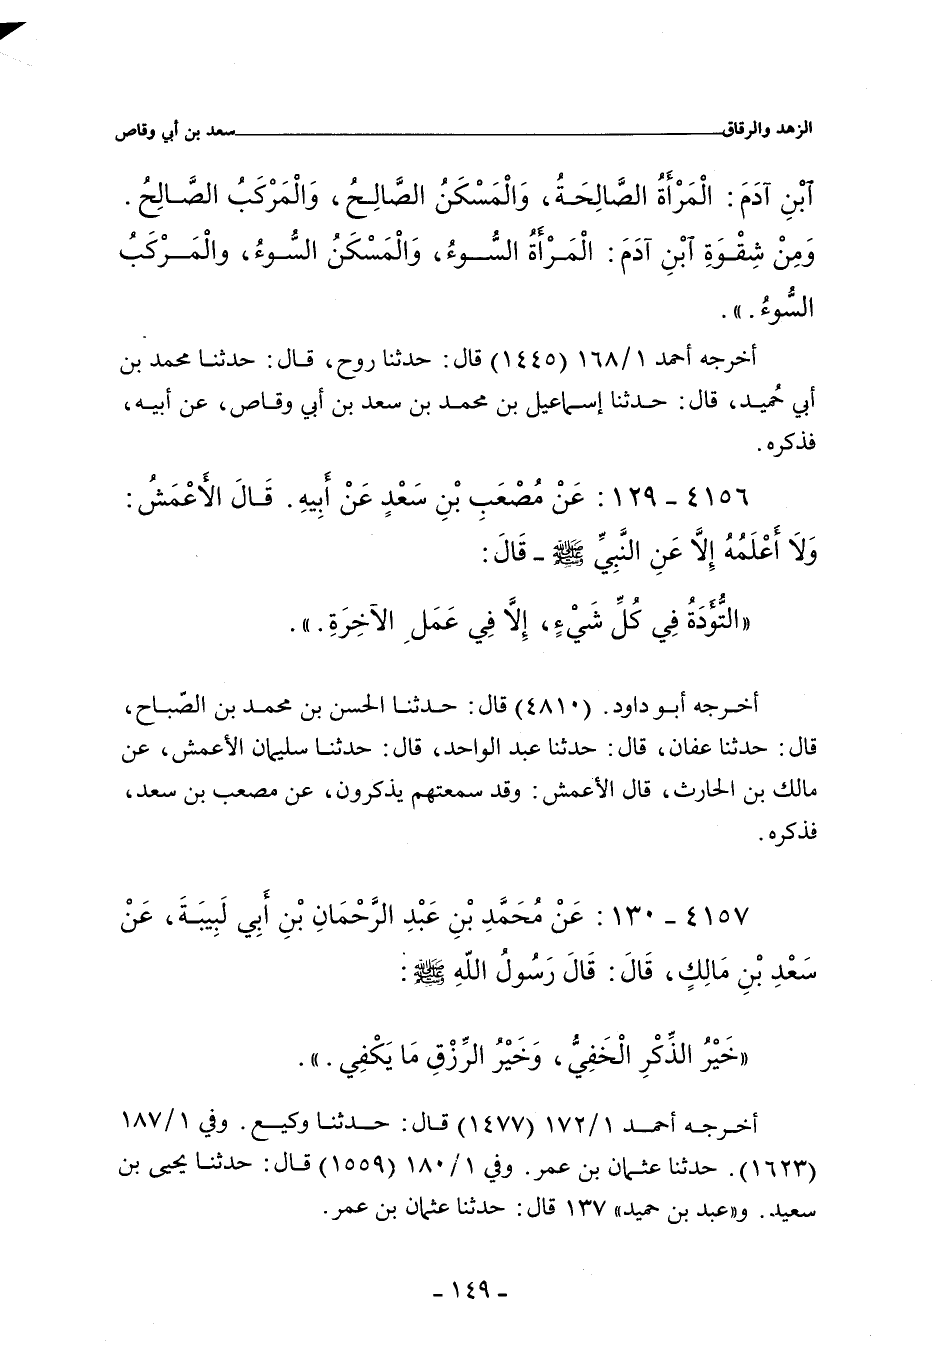 الزهد والرقاق ــــــ سعد بن أبي وقاص
ٱبْنِ آدَمَ : الْمَرْأَةُ الصَّالِحَةُ، وَالْمَسْكَنُ الصَّالِحُ، وَالْمَرْكَبُ الصَّالِحُ .
وَمِنْ شِقْوَةِ ٱبْنِ آدَمَ : الْمَرْأَةُ السُّوءُ، وَالْمَسْكَنُ السُّوءُ، والْمَرْكَبُ
السُّوءُ . » .
أخرجه أحمد ١٦٨/١ (١٤٤٥) قال : حدثنا روح، قال : حدثنا محمد بن
أبي حُميد، قال : حدثنا إسماعيل بن محمد بن سعد بن أبي وقاص، عن أبيه،
فذكره .
٤١٥٦ - ١٢٩ : عَنْ مُصْعَبِ بْنِ سَعْدٍ عَنْ أَبِيهِ . قَالَ الأَعْمَشُ :
وَلَا أَعْلَمُهُ إِلَّا عَنِ النَّبِيِّ ﷺ - قَالَ :
«التُّؤَدَةُ فِي كُلِّ شَيْءٍ، إِلَّا فِي عَمَلِ الآخِرَةِ . » .
أخرجه أبو داود . (٤٨١٠) قال : حدثنا الحسن بن محمد بن الصّباح،
قال : حدثنا عفان، قال : حدثنا عبد الواحد، قال : حدثنا سليمان الأعمش، عن
مالك بن الحارث، قال الأعمش : وقد سمعتهم يذكرون، عن مصعب بن سعد،
فذكره .
٤١٥٧ - ١٣٠ : عَنْ مُحَمَّدِ بْنِ عَبْدِ الرَّحْمَانِ بْنِ أَبِي لَبِيبَةَ، عَنْ
سَعْدِ بْنِ مَالِكٍ، قَالَ : قَالَ رَسُولُ اللّهِ ﷺ :
«خَيْرُ الذِّكْرِ الْخَفِيُّ، وَخَيْرُ الرِّزْقِ مَا يَكْفِي . » .
أخرجه أحمد ١٧٢/١ (١٤٧٧) قال : حدثنا وكيع . وفي ١٨٧/١
(١٦٢٣) . حدثنا عثمان بن عمر . وفي ١٨٠/١ (١٥٥٩) قال : حدثنا يحيى بن
سعيد . و«عبد بن حميد» ١٣٧ قال : حدثنا عثمان بن عمر .
- ١٤٩ -